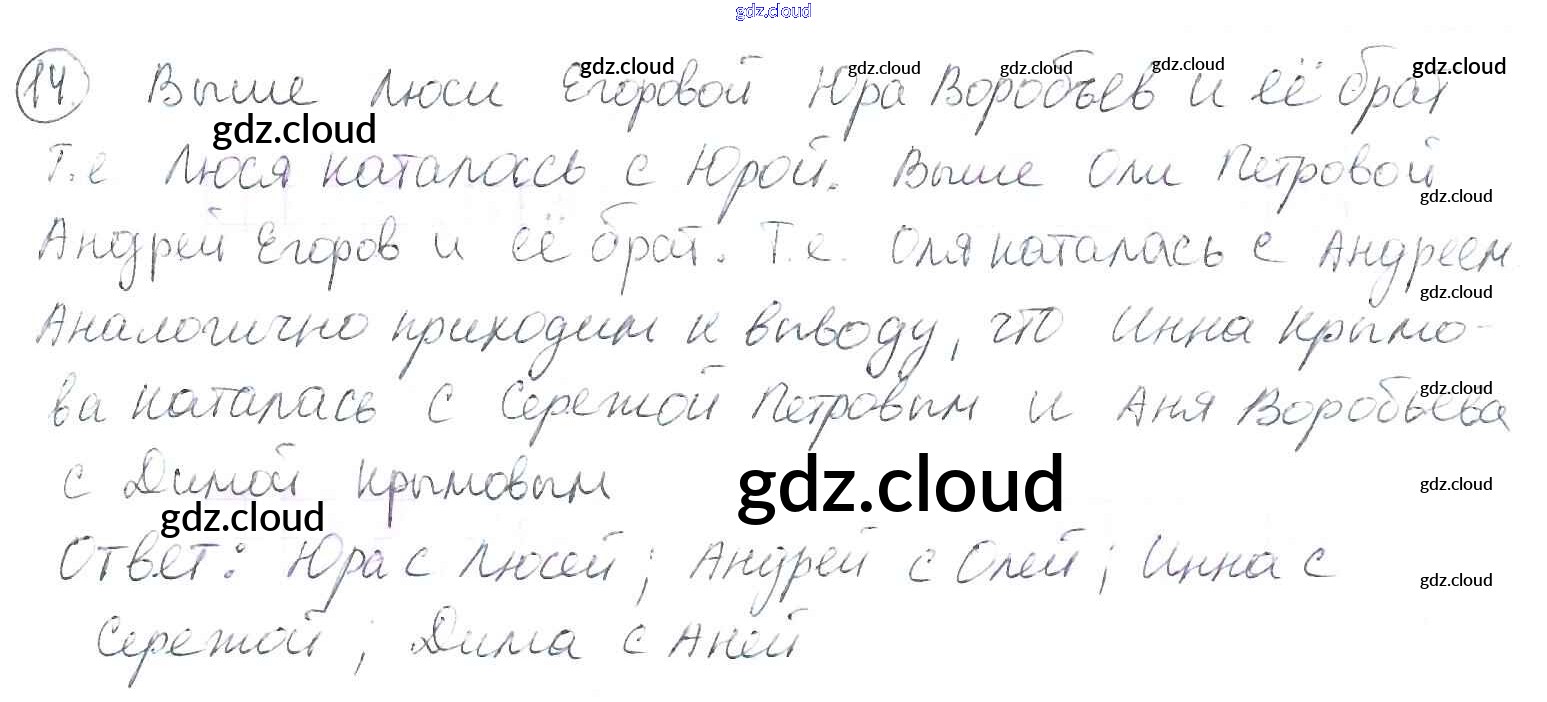 gdz.cloud
14 Выше Люси Егоровой Юра Воробъев и её брат
gdz.cloud gdz.cloud gdz.cloud gdz.cloud gdz.cloud
gdz.cloud
Т.е Люся каталась с Юрой. Выше Оли Петровой
gdz.cloud
Андрей Егоров и её брат. Т.е. Оля каталась с Андреем
gdz.cloud
Аналогично приходим к выводу, что Инна Крымо-
ва каталась с Сережой Петровым и Аня Воробьева
gdz.cloud
с Димой Крымовым
gdz.cloud gdz.cloud
gdz.cloud
Ответ: Юра с Люсей; Андрей с Олей; Инна с
gdz.cloud
Сережой; Дима с Аней